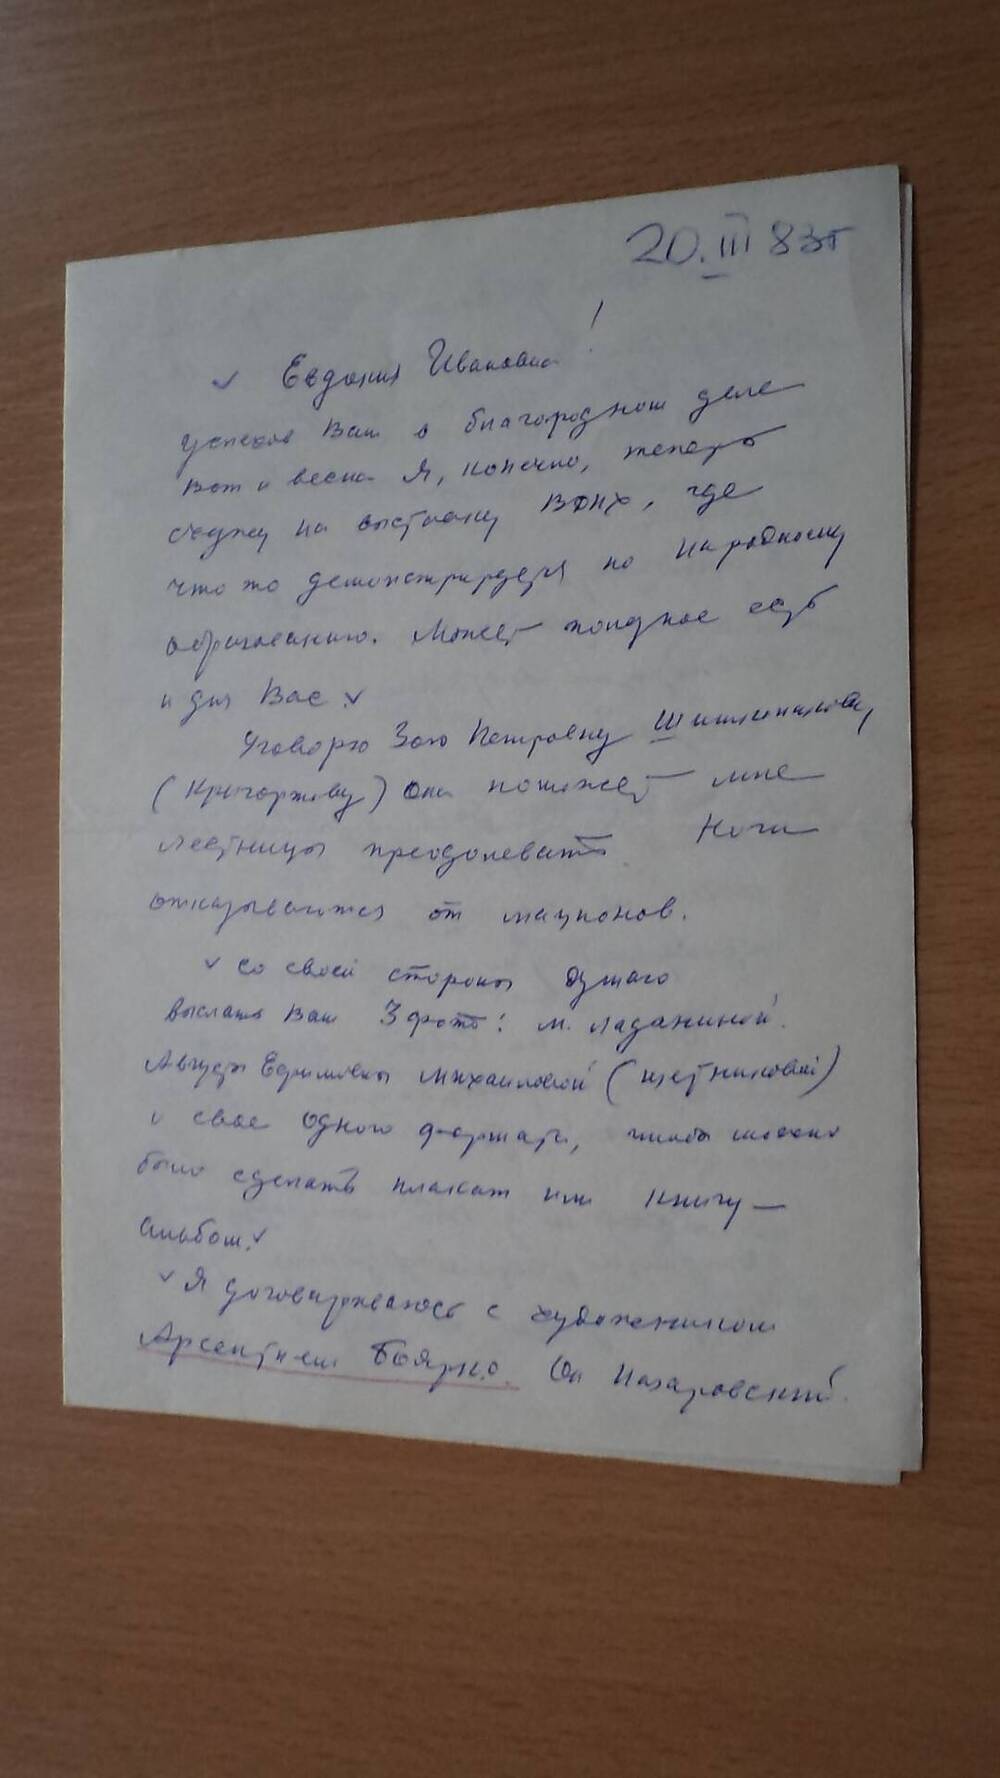 20.III 83г
Евдокия Ивановна!
успехов Вам в благородном деле
Вот и весна Я, конечно, теперь
съезжу на выставку ВДНХ, где
что то демонстрируется по народному
образованию. Может полезное есть
и для Вас.
Уговорю Зою Петровну
она поможет мне
лестницы преодолевать Ноги
отказываются от
со своей стороны думаю
выслать Вам 3 фото: М. Ладаниной.
Августы Ефимовны Михайловой (Щетниковой)
и свое одного формата, чтобы можно
было сделать плакат или книгу —
альбом.
Я договариваюсь с художником
Арсентием Боярко. Он Назаровский.